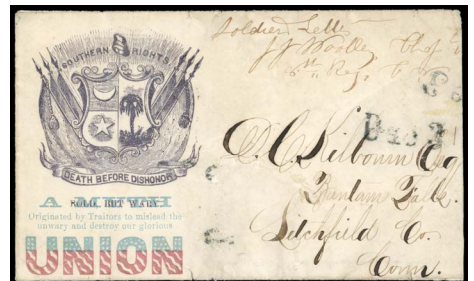 SOUTHERN RIGHTS
DEATH BEFORE DISHONOR
BOLD, BUT WARY
Originated by Traitors to mislead the
unwary and destroy our glorious
UNION
Soldiers Letter
J J Woolley Chap
8th Reg. C V
Due 3
D. C. Kilbourn Esq
Bantam Falls.
Litchfield Co.
Conn.